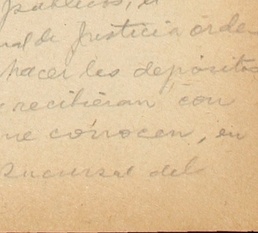 públicos, el
nal de Justicia orde
hacer los depósitos
recibieran con
ne conocen, en
sucursal del